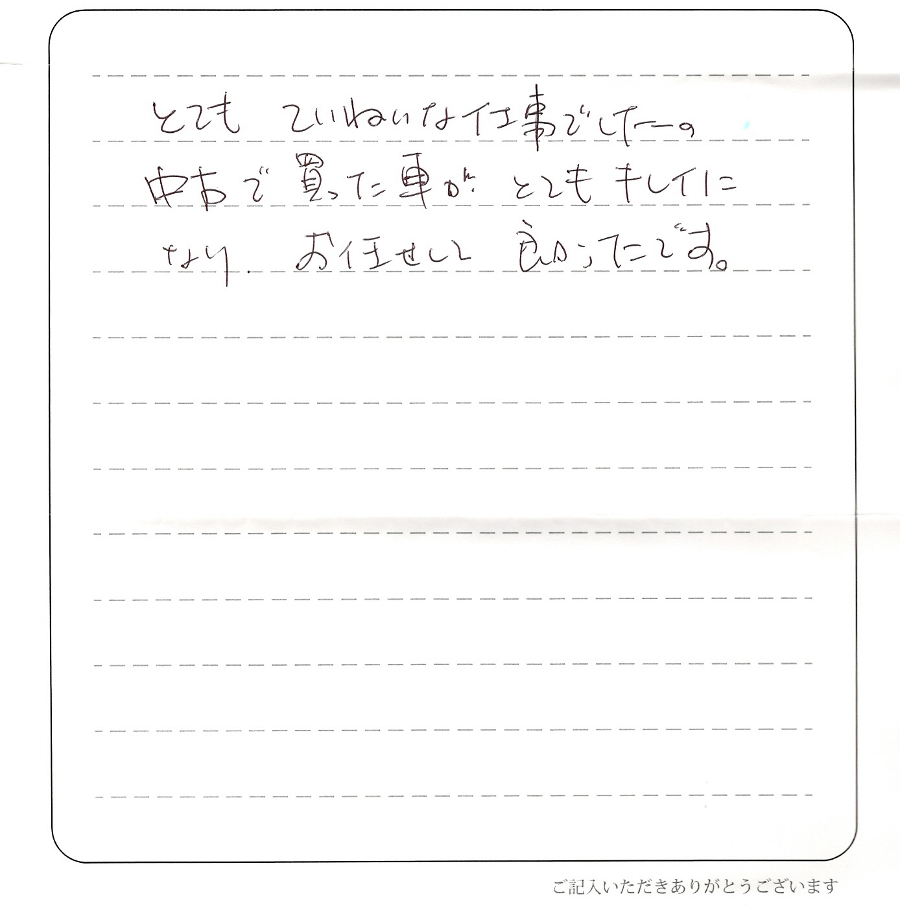 とても ていねいな仕事でした。
中古で買った車が とてもキレイに
なり、お任せして 良かったです。
ご記入いただきありがとうございます